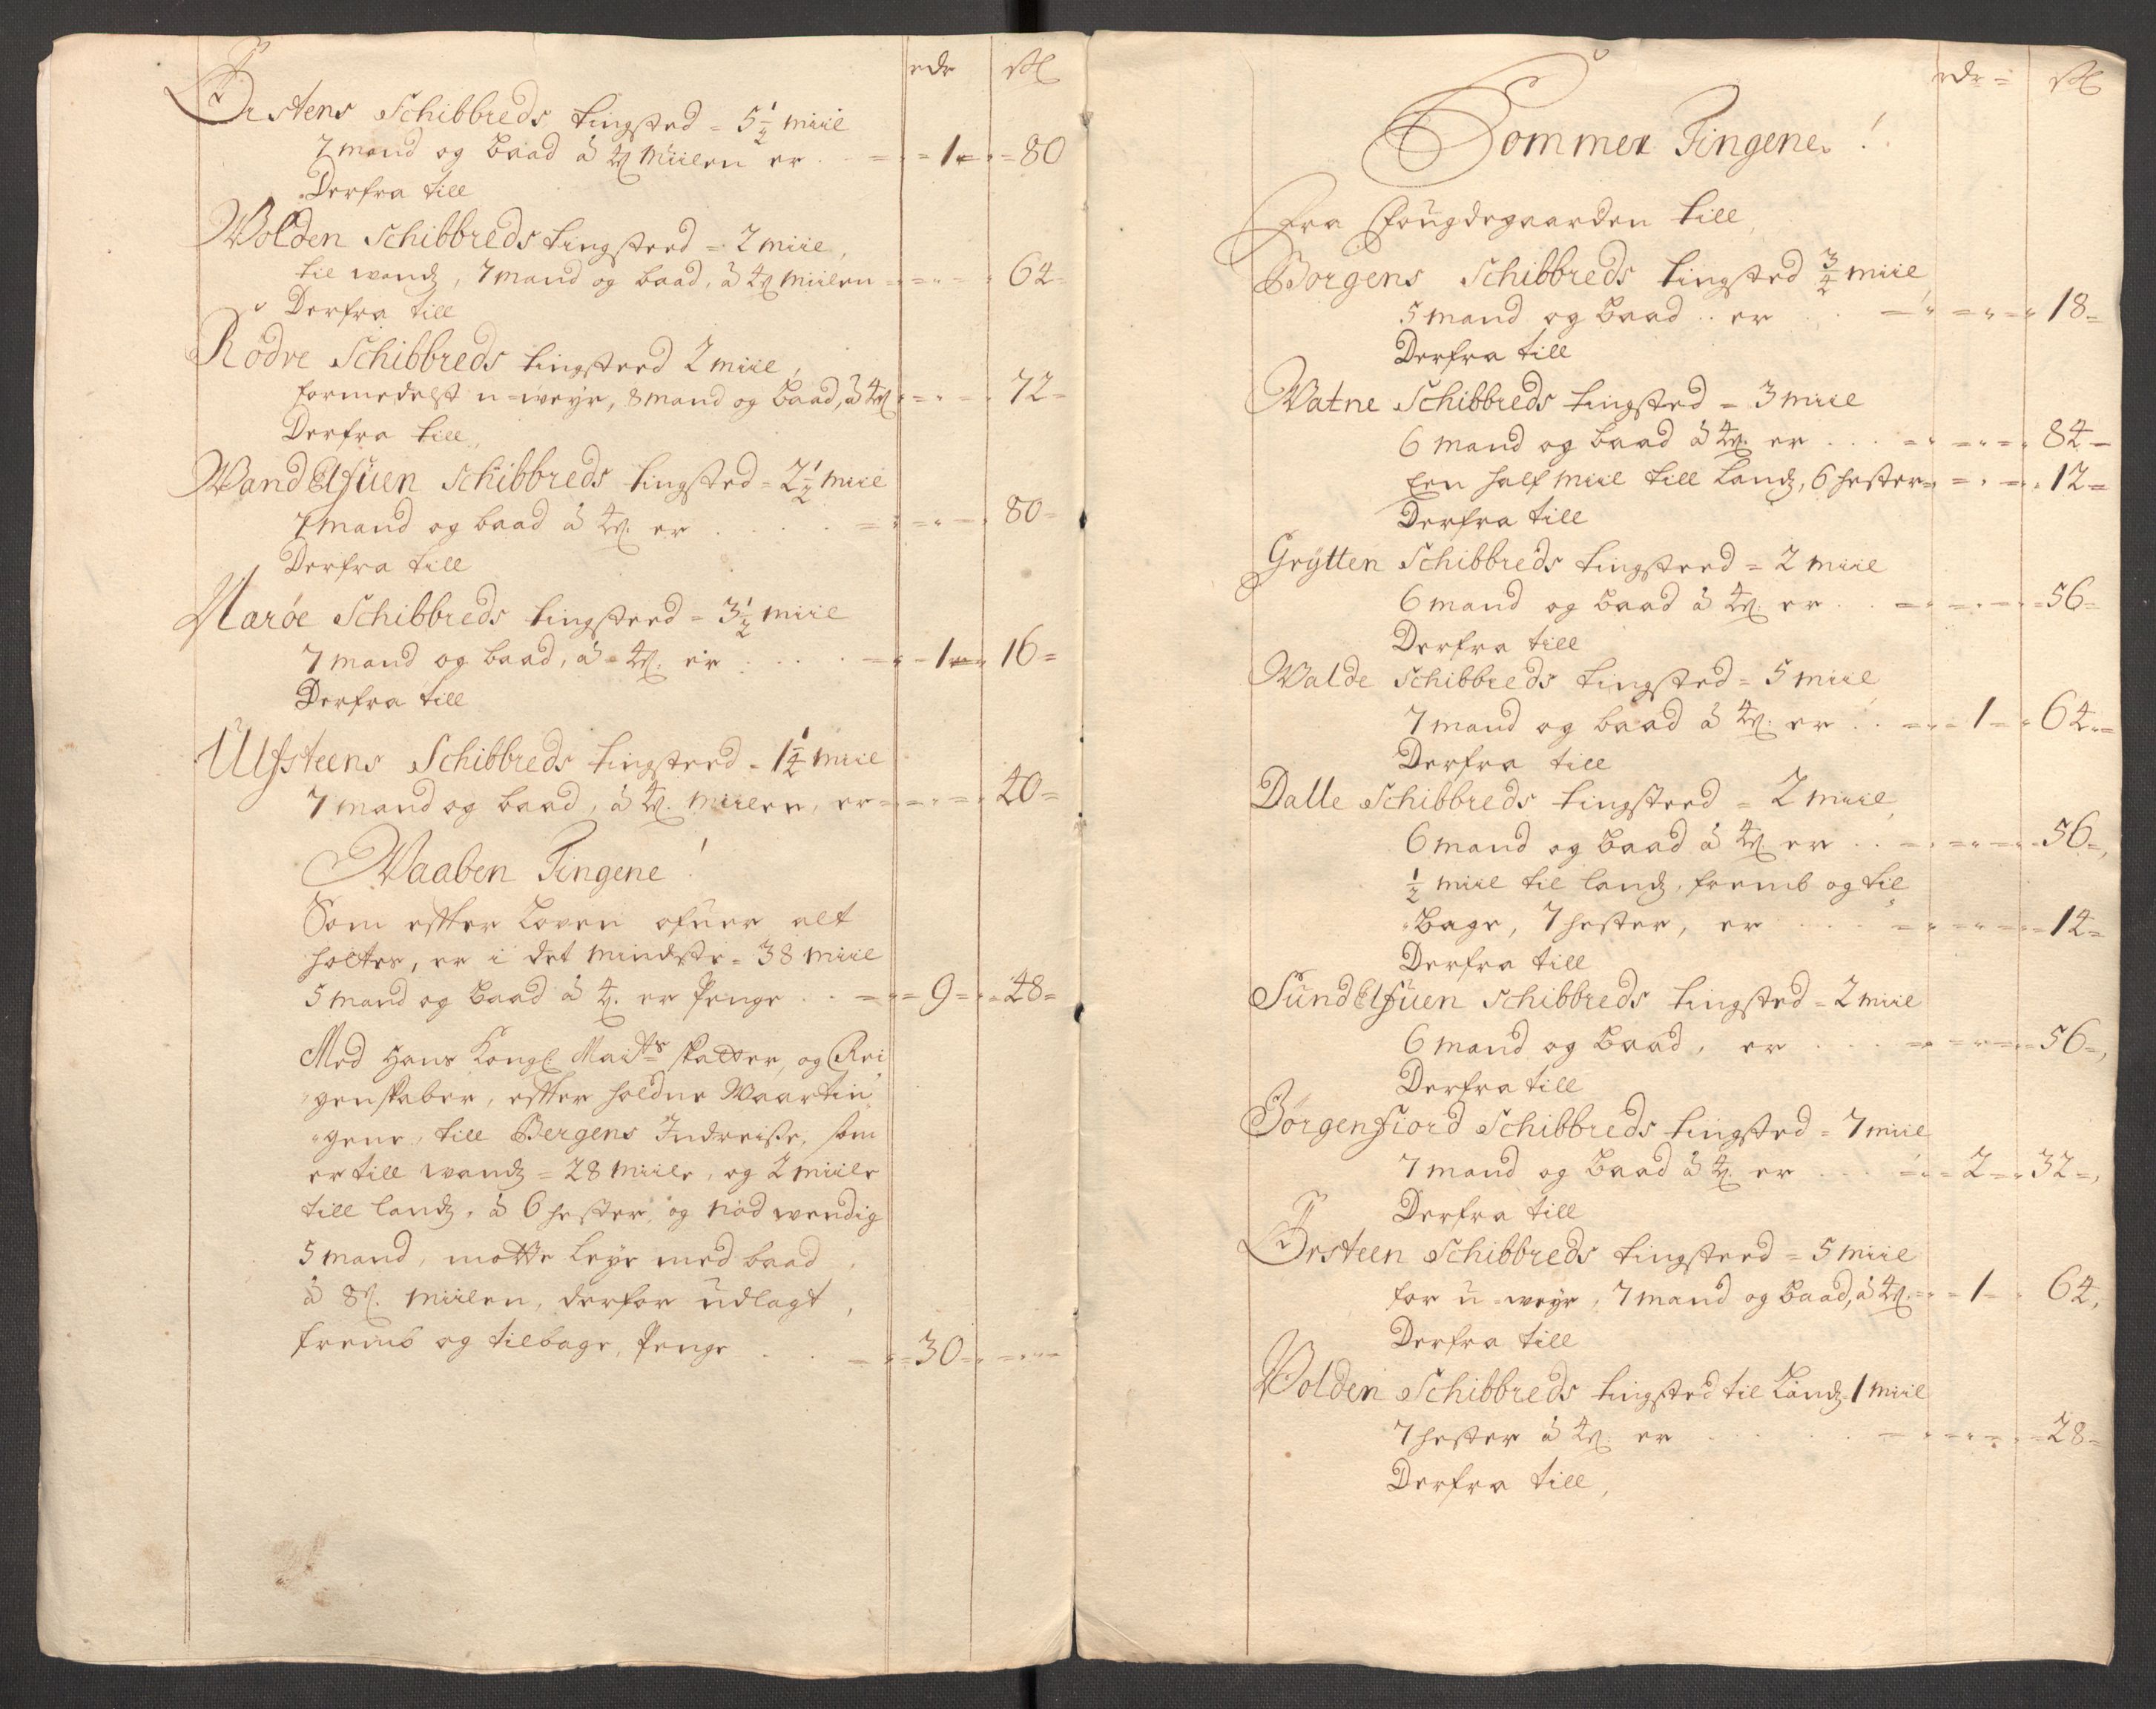 rdr sk
Ørstens Schibbreds tingsted = 5 1/2 miil
7 mand og baad â 4 sk miilen er . . = " = 1 = " = 80
Derfra till
Wolden Schibbreds tingsted = 2 miil,
til wands, 7 mand og baad, â 4 sk miilen = " = " = " 64 =
Derfra till
Rödve Schibbreds tingsted 2 miil,
formedelst u=weyr, 8 mand og baad, â 4 sk " = " = " 72 =
Derfra till,
Wandelfuen Schibbreds tingsted = 2 1/2 miil
7 mand og baad â 4 sk. er . . . . = " = " = " 80 =
Derfra till
Harøe Schibbreds tingsted = 3 1/2 miil
7 mand og baad, â 4 sk. er . . . . = " = 1 = " 16 =
Derfra till
Ulfsteens Schibbreds tingsted = 1 1/4 miil
7 mand og baad, â 4 sk. miilen, er = " = " = " 40 =
Waaben Tingene!
Som effter Loven ofuer alt
holtes, er i det mindste = 38 miil
5 mand og baad â 4. er Penge . . = " = 9 = " = 48 =
Med Hans Kongl Maits skatter, og Rei
"genskaber, effter holdne Waartin
"gene, till Bergens Indreise, som
er till wands = 28 miile, og 2 miile
till lands, â 6 hester, og nödwendig
5 mand, motte leye med baad
â 8 sk. miilen, derfor udlagt,
fremb og tilbage, Penge . . = " = 30 = " = " =
rdr = sk
Sommer Tingene!
Fra Fougdegaarden till,
Borgens Schibbreds tingsted 3/4 miil,
5 mand og baad . . er . . = " = " = " 18 =
Derfra till
Watne Schibbreds tingsted = 3 miil
6 mand og baad â 4 sk. er . . . = " = " = " 84 =
Een half miil till Lands, 6 hester = " = " = " 12 =
Derfra till
Grytten Schibbreds tingsted = 2 miil
6 mand og baad â 4 sk. er . . = " = " = " = 56 =
Derfra till
Walde Schibbreds tingsted = 5 miil
7 mand og baad â 4 sk. er . . = " = 1 = " 64 " =
Derfra till
Dalle Schibbreds tingsted = 2 miil,
6 mand og baad â 4 sk. er . . = " = " = " = 56 =,
1/2 miil til lands, fremb og til
"bage, 7 hester, er . . . . = " = " = " = 14 =
Derfra till
Sundelfuen Schibbreds tingsted = 2 miil
6 mand og baad, er . . . . = " = " = 56 =,
Derfra till
Jörgenfiord Schibbreds tingsted = 7 miil
7 mand og baad â 4 sk. er . . . = " = 2 = " 32 =,
Derfra till
Ørsteen Schibbreds tingsted = 5 miil
for u=weyr, 7 mand og baad, â 4 sk. = " = 1 = " 64,
Derfra till
Volden Schibbreds tingsted til Lands 1 miil
7 hester â 4 sk. er . . . . = " = " = " = 28 =
Derfra till,